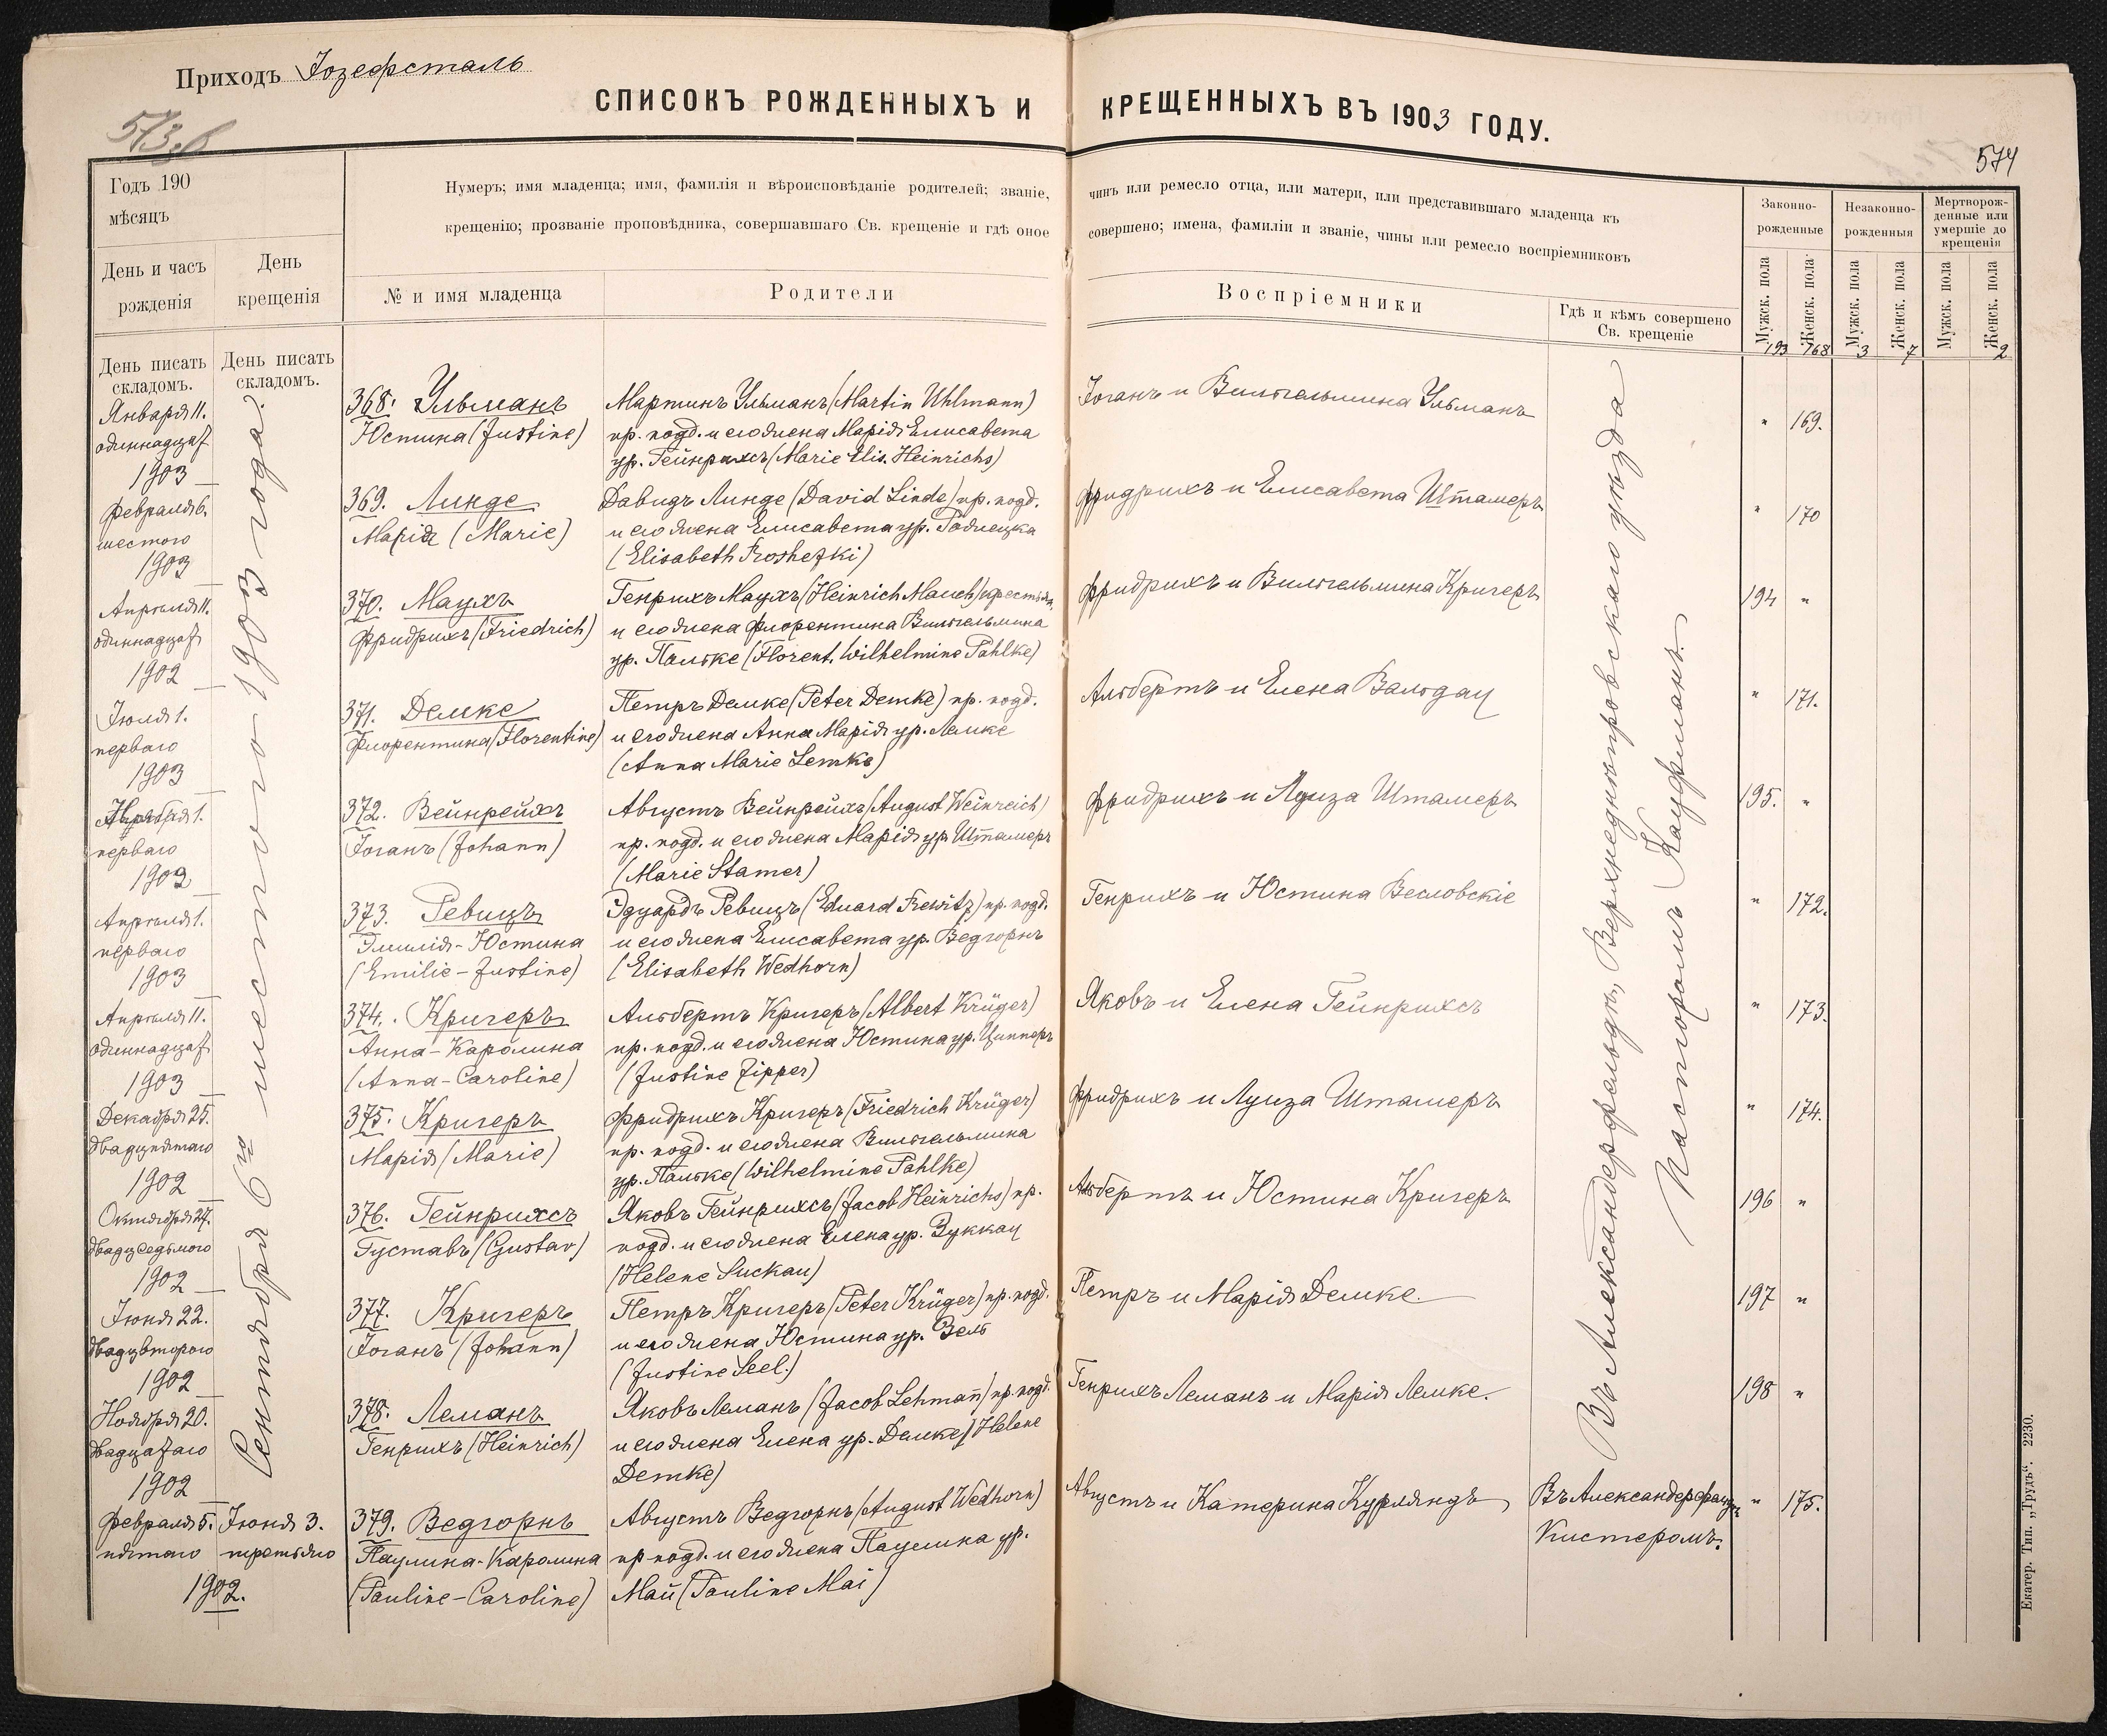 Приходъ Іозефсталь
СПИСОКЪ РОЖДЕННЫХЪ И КРЕЩЕННЫХЪ ВЪ 1903 ГОДУ.
574
Годъ 190
мѣсяцъ
Нумеръ; имя младенца; имя, фамилія и вѣроисповѣданіе родителей; званіе, чинъ или ремесло отца, или матери, или представившаго младенца къ
крещенію; прозваніе проповѣдника, совершавшаго Св. крещеніе и гдѣ оное совершено; имена, фамиліи и званіе, чины или ремесло воспріемниковъ
Законно-
рожденные
Незаконно-
рожденныя
Мертворож-
денные или
умершіе до
крещенія
День и часъ
рожденія
День
крещенія
№ и имя младенца
Родители
Воспріемники
Гдѣ и кѣмъ совершено
Св. крещеніе
Мужск. пола
Женск. пола
Мужск. пола
Женск. пола
Мужск. пола
Женск. пола
193 168 3 7 2
День писать
складомъ.
День писать
складомъ.
Сентября 6го шестого 1903 года.
Въ Александерфельдѣ, Верхнеднѣпровскаго уѣзда
Пасторомъ Кауфманъ.
Января 11.
одиннадцат
1903
368. Ульманъ
Юстина (Justine)
Мартинъ Ульманъ (Martin Uhlmann)
пр. подд. и его жена Марія Елисавета
ур. Гейнрихсъ (Marie Elis. Heinrichs)
Іоганъ и Вильгельмина Ульманъ
" 169.
Февраля 6.
шестого
1903
369. Линде
Марія (Marie)
Давидъ Линде (David Linde) пр. подд.
и его жена Елисавета ур.
(Elisabeth
Фридрихъ и Елисавета Штамеръ
" 170
Апрѣля 11.
одиннадцат
1902
370. Маухъ
Фридрихъ (Friedrich)
Генрихъ Маухъ (Heinrich Mauch) крестьян.
и его жена Флорентина Вильгельмина
ур. Пальке (Florent. Wilhelmine Pahlke)
Фридрихъ и Вильгельмина Кригеръ
194 "
Іюля 1.
перваго
1903
371. Демке
Флорентина (Florentine)
Петръ Демке (Peter Demke) пр. подд.
и его жена Анна Марія ур. Лемке
(Anna Marie Lemke)
Альбертъ и Елена Вальдау
" 171.
1.
перваго
1902
372. Вейнрейхъ
Іоганъ (Johann)
Августъ Вейнрейхъ (August Weinreich)
пр. подд. и его жена Марія ур. Штамеръ
(Marie Stamer)
Фридрихъ и Луиза Штамеръ
195. "
Апрѣля 1.
перваго
1903
373. Ревицъ
Эмилія-Юстина
(Emilie-Justine)
Эдуардъ Ревицъ (Eduard Rewitz) пр. подд.
и его жена Елисавета ур. Ведгорнъ
(Elisabeth Wedhorn)
Генрихъ и Юстина Весловскіе
" 172.
Апрѣля 11.
одиннадцат
1903
374. Кригеръ
Анна-Каролина
(Anna-Caroline)
Альбертъ Кригеръ (Albert Krüger)
пр. подд. и его жена Юстина ур. Ципперъ
(Justine Zipper)
Яковъ и Елена Гейнрихсъ
" 173.
Декабря 25.
двадцпятаго
1902
375. Кригеръ
Марія (Marie)
Фридрихъ Кригеръ (Friedrich Krüger)
пр. подд. и его жена Вильгельмина
ур. Пальке (Wilhelmine Pahlke)
Фридрихъ и Луиза Штамеръ
" 174.
Октября 27.
двадцседьмого
1902
376. Гейнрихсъ
Густавъ (Gustav)
Яковъ Гейнрихсъ (Jacob Heinrichs) пр.
подд. и его жена Елена ур. Зуккау
(Helene Suckau)
Альбертъ и Юстина Кригеръ
196 "
Іюня 22.
двадцвторого
1902
377. Кригеръ
Іоганъ (Johann)
Петръ Кригеръ (Peter Krüger) пр. подд.
и его жена Юстина ур. Зель
(Justine Seel.)
Петръ и Марія Демке.
197 "
Ноября 20.
двадцатаго
1902
378. Леманъ
Генрихъ (Heinrich)
Яковъ Леманъ (Jacob Lehmañ) пр. подд.
и его жена Елена ур. Демке (Helene
Demke)
Генрихъ Леманъ и Марія Лемке.
198 "
Февраля 5.
пятаго
Іюня 3.
третьяго
1902.
379. Ведгорнъ
Паулина-Каролина
(Pauline-Caroline)
Августъ Ведгорнъ (August Wedhorn)
пр подд. и его жена Паулина ур.
Май (Pauline Mai)
Августъ и Катерина Курляндъ
Кистеромъ.
" 175.
Екатер. Тип. „Трудъ“. 2230.